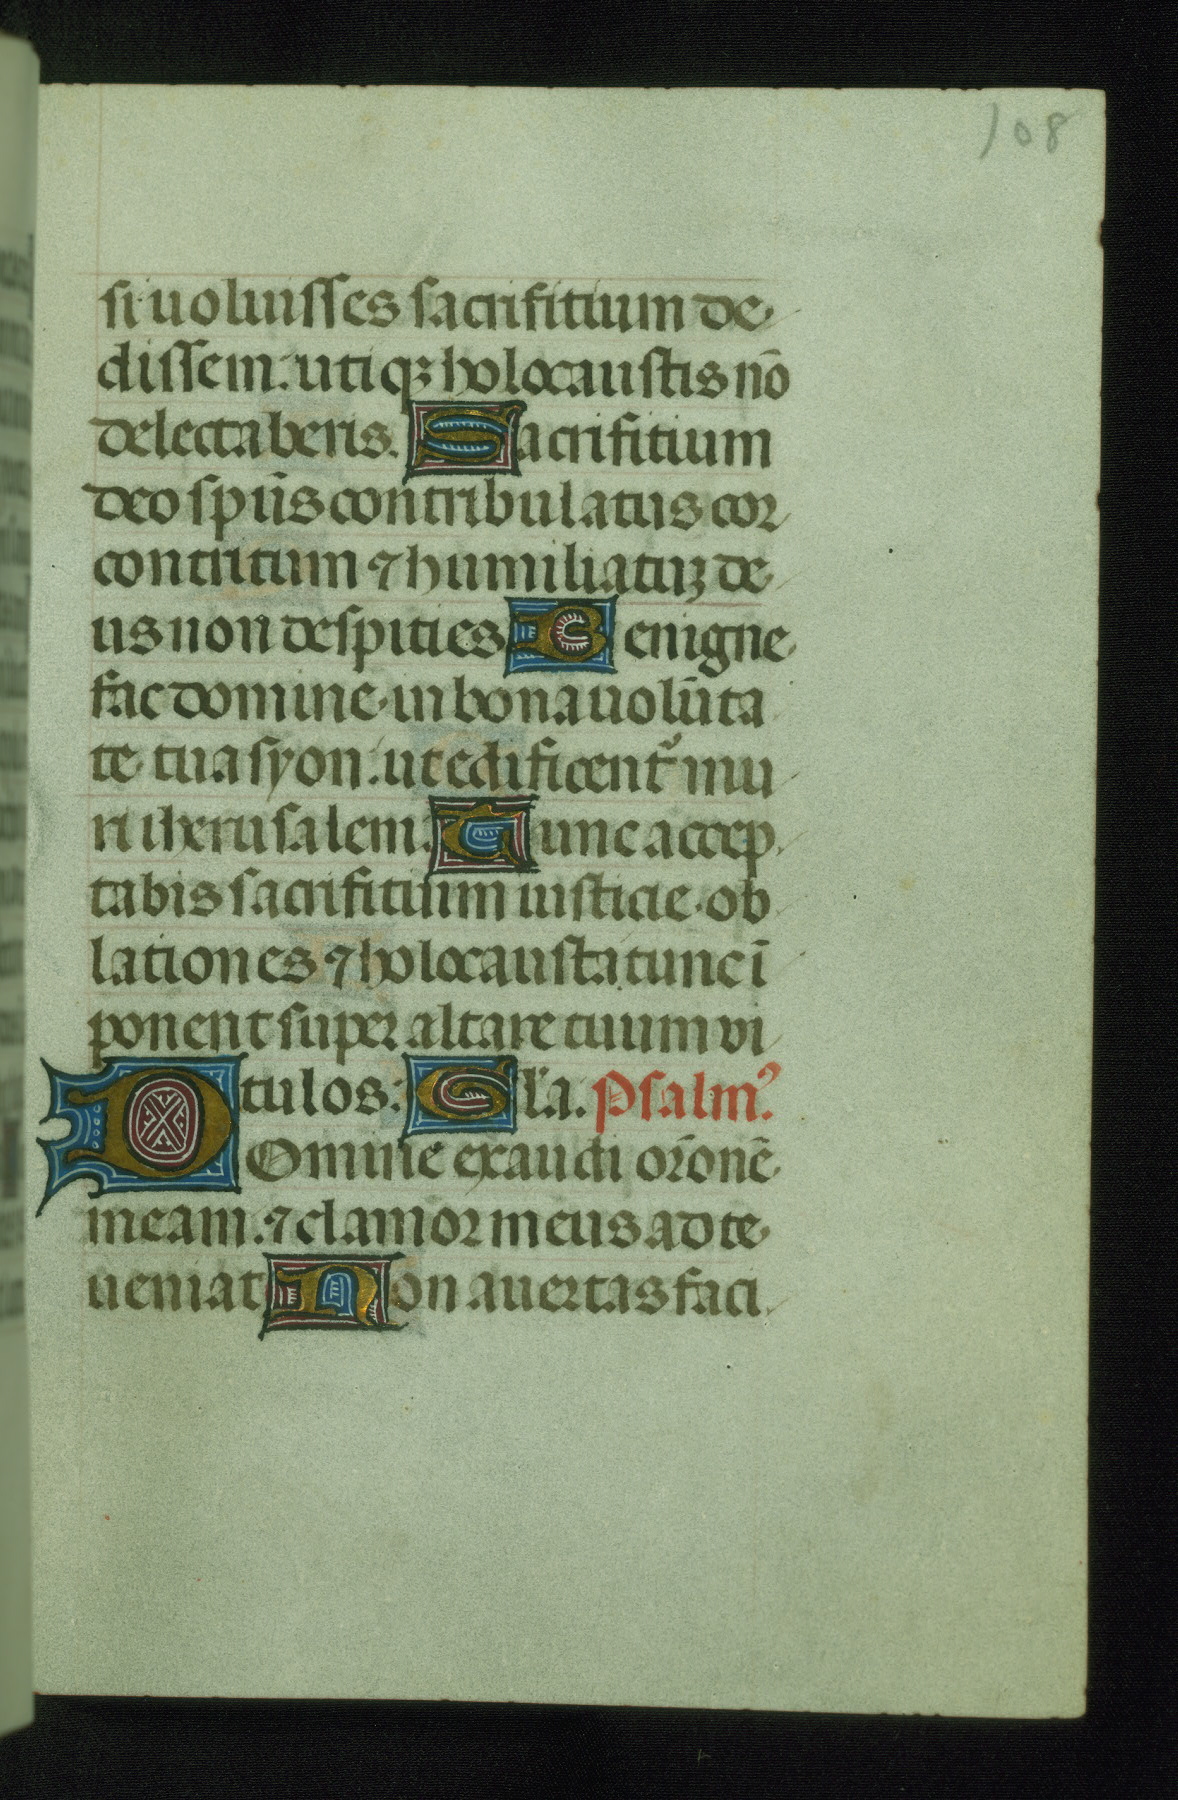 108
si uoluisses sacrifitium de
dissem. utiqꝫ holocaustis nō
delectaberis. Sacrifitium
deo spūs contribulatus cor
contritum ⁊ humiliatuꝫ de
us non despities Benigne
fac domine in bona uolūta
te tua syon. ut edificentʳ mu
ri iherusalem. Tunc accep
tabis sacrifitium iusticie ob
lationes ⁊ holocausta tunc ī
ponent super altare tuum vi
tulos: Gl'a. Psalmꝰ.
DOmine exaudi or̄onē
meam. ⁊ clamor meus ad te
ueniat Non auertas faci